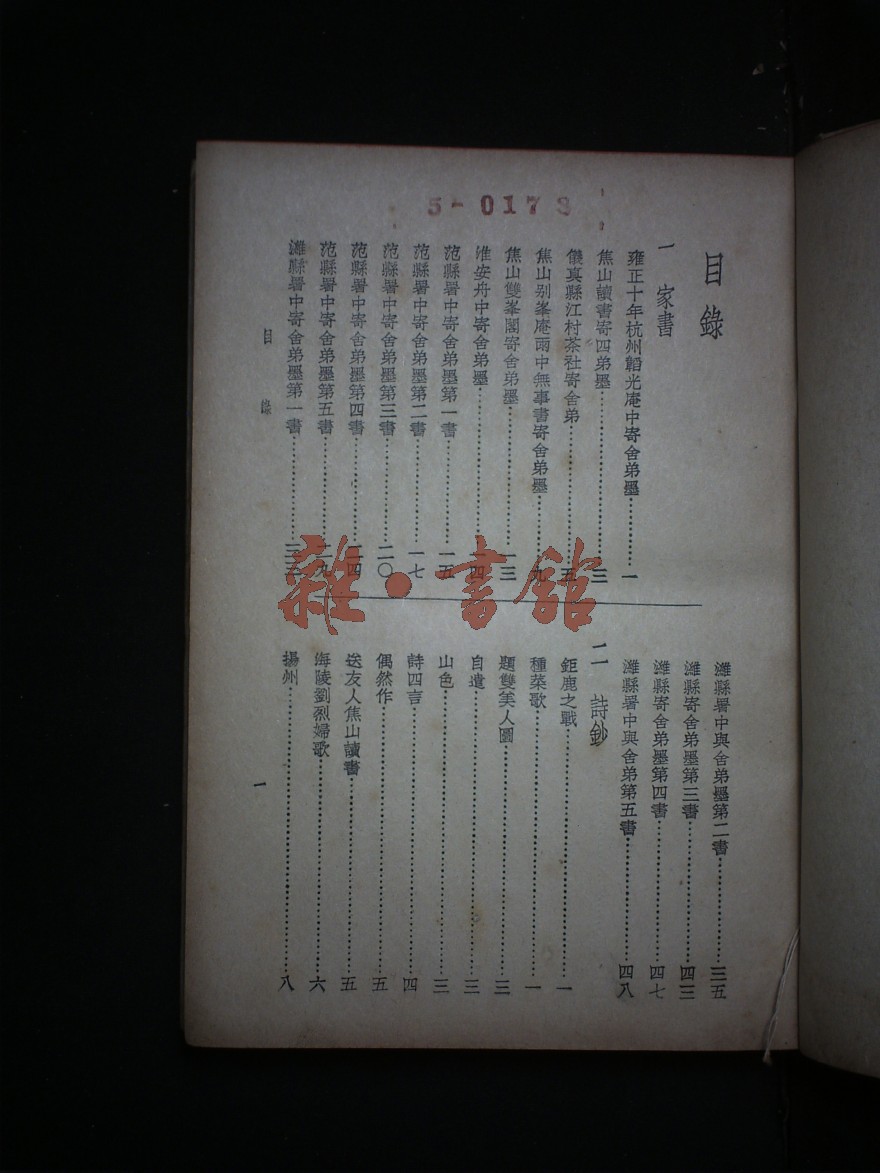 5-0173
目錄
一 家書
雍正十年杭州韜光庵中寄舍弟墨…………一
焦山讀書寄四弟墨…………三
儀真縣江村茶社寄舍弟…………五
焦山別峯庵雨中無事書寄舍弟墨…………九
焦山雙峯閣寄舍弟墨…………一三
淮安舟中寄舍弟墨…………一四
范縣署中寄舍弟墨第一書…………一五
范縣署中寄舍弟墨第二書…………一七
范縣署中寄舍弟墨第三書…………二〇
范縣署中寄舍弟墨第四書…………二四
范縣署中寄舍弟墨第五書…………二九
濰縣署中寄舍弟墨第一書…………三三
濰縣署中與舍弟墨第二書…………三五
濰縣寄舍弟墨第三書…………四三
濰縣寄舍弟墨第四書…………四七
濰縣署中與舍弟第五書…………四八
二 詩鈔
鉅鹿之戰…………一
種菜歌…………一
題雙美人圖…………三
自遣…………三
山色…………三
詩四言…………四
偶然作…………五
送友人焦山讀書…………五
海陵劉烈婦歌…………六
揚州…………八
目錄
一
雜·書館